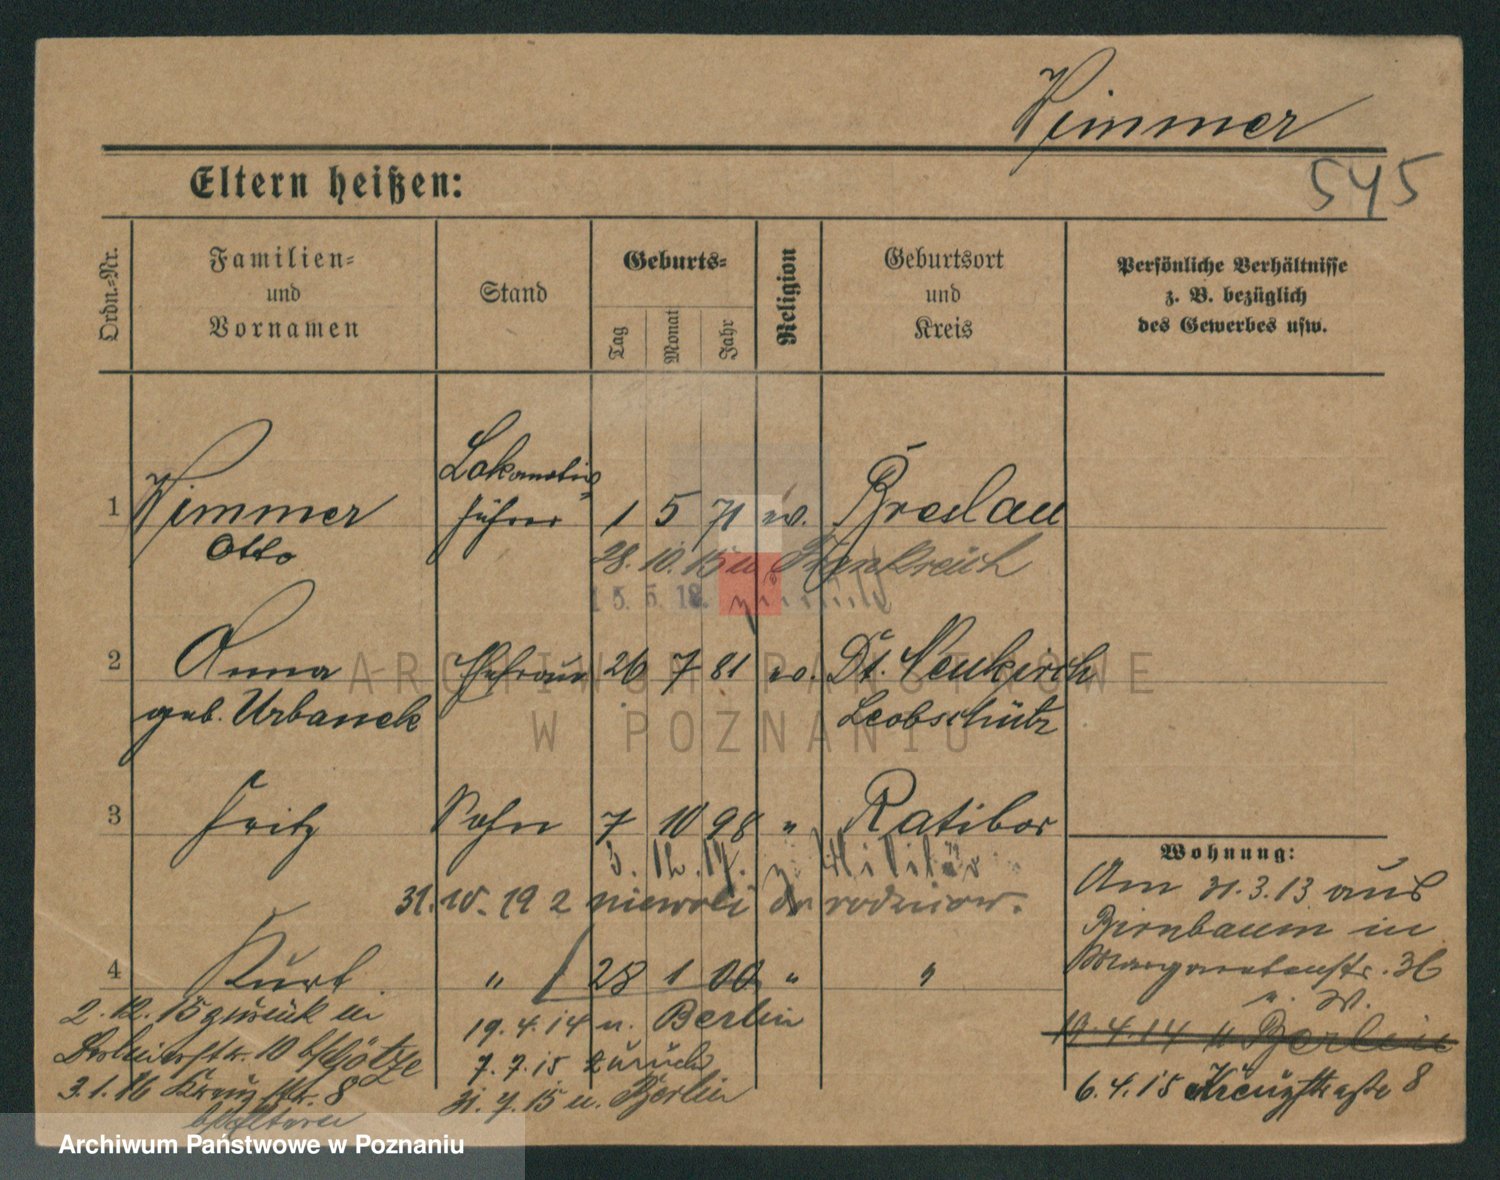 Wimmer
545
Eltern heißen:
Ordn.-Nr.
Familien-
und
Vornamen
Stand
Geburts-
Tag
Monat
Jahr
Religion
Geburtsort
und
Kreis
Persönliche Verhältnisse
z. B. bezüglich
des Gewerbes usw.
1 Wimmer Lokomotiv- führer 1 5 71 ev. Breslau
Otto
28. 10. 15 n Frankreich
15. 5. 18. zurück
2 Anna Ehefrau 26 7 81 ev. Dt. Neukirch
geb. Urbanek Leobschütz
3 Fritz Sohn 7 10 98 " Ratibor
3. 12. 17. z. Militär
31. 10. 19 z niewoli do rodziców.
4 Kurt " 28 1 00 " "
2. 12. 15 zurück in
10 b/Götze
3. 1. 16 Kreuzstr. 8
b/Eltern
19. 4. 14 n. Berlin
7. 7. 15 zurück
31. 7. 15 n. Berlin
Wohnung:
Am 31. 3. 13 aus
Birnbaum in
Margaretenstr. 36
z. W.
19. 4. 14 n Berlin
6. 4. 15 Kreuzstraße 8
ARCHIWUM PAŃSTWOWE
W POZNANIU
Archiwum Państwowe w Poznaniu